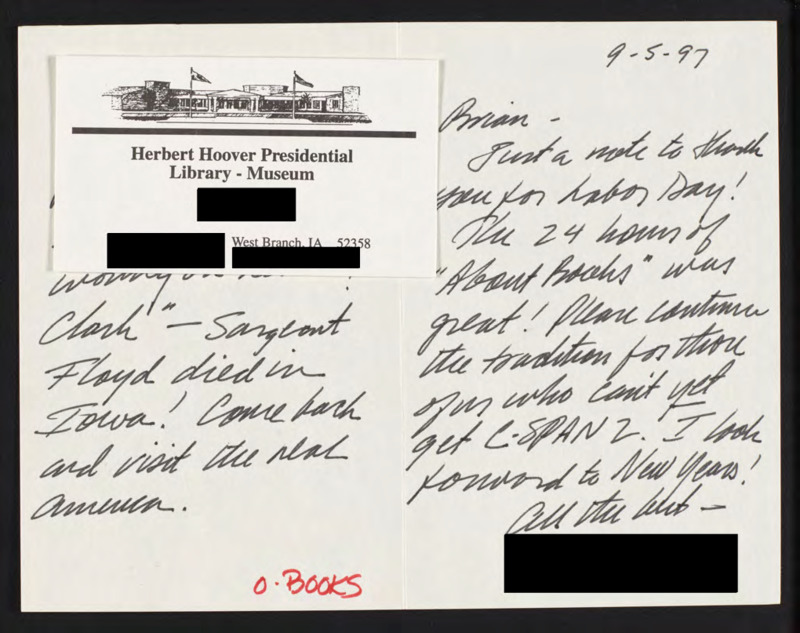 Herbert Hoover Presidential
Library - Museum
West Branch, IA 52358
Clark" — Sargeant
Floyd died in
Iowa! Come back
and visit the real
America.
O. BOOKS
9-5-97
Brian -
Just a note to thank
you for Labor Day!
The 24 hours of
"About Books" was
great! Please continue
the tradition for those
of us who can't yet
get C-SPAN 2. I look
forward to New Years!
All the best -